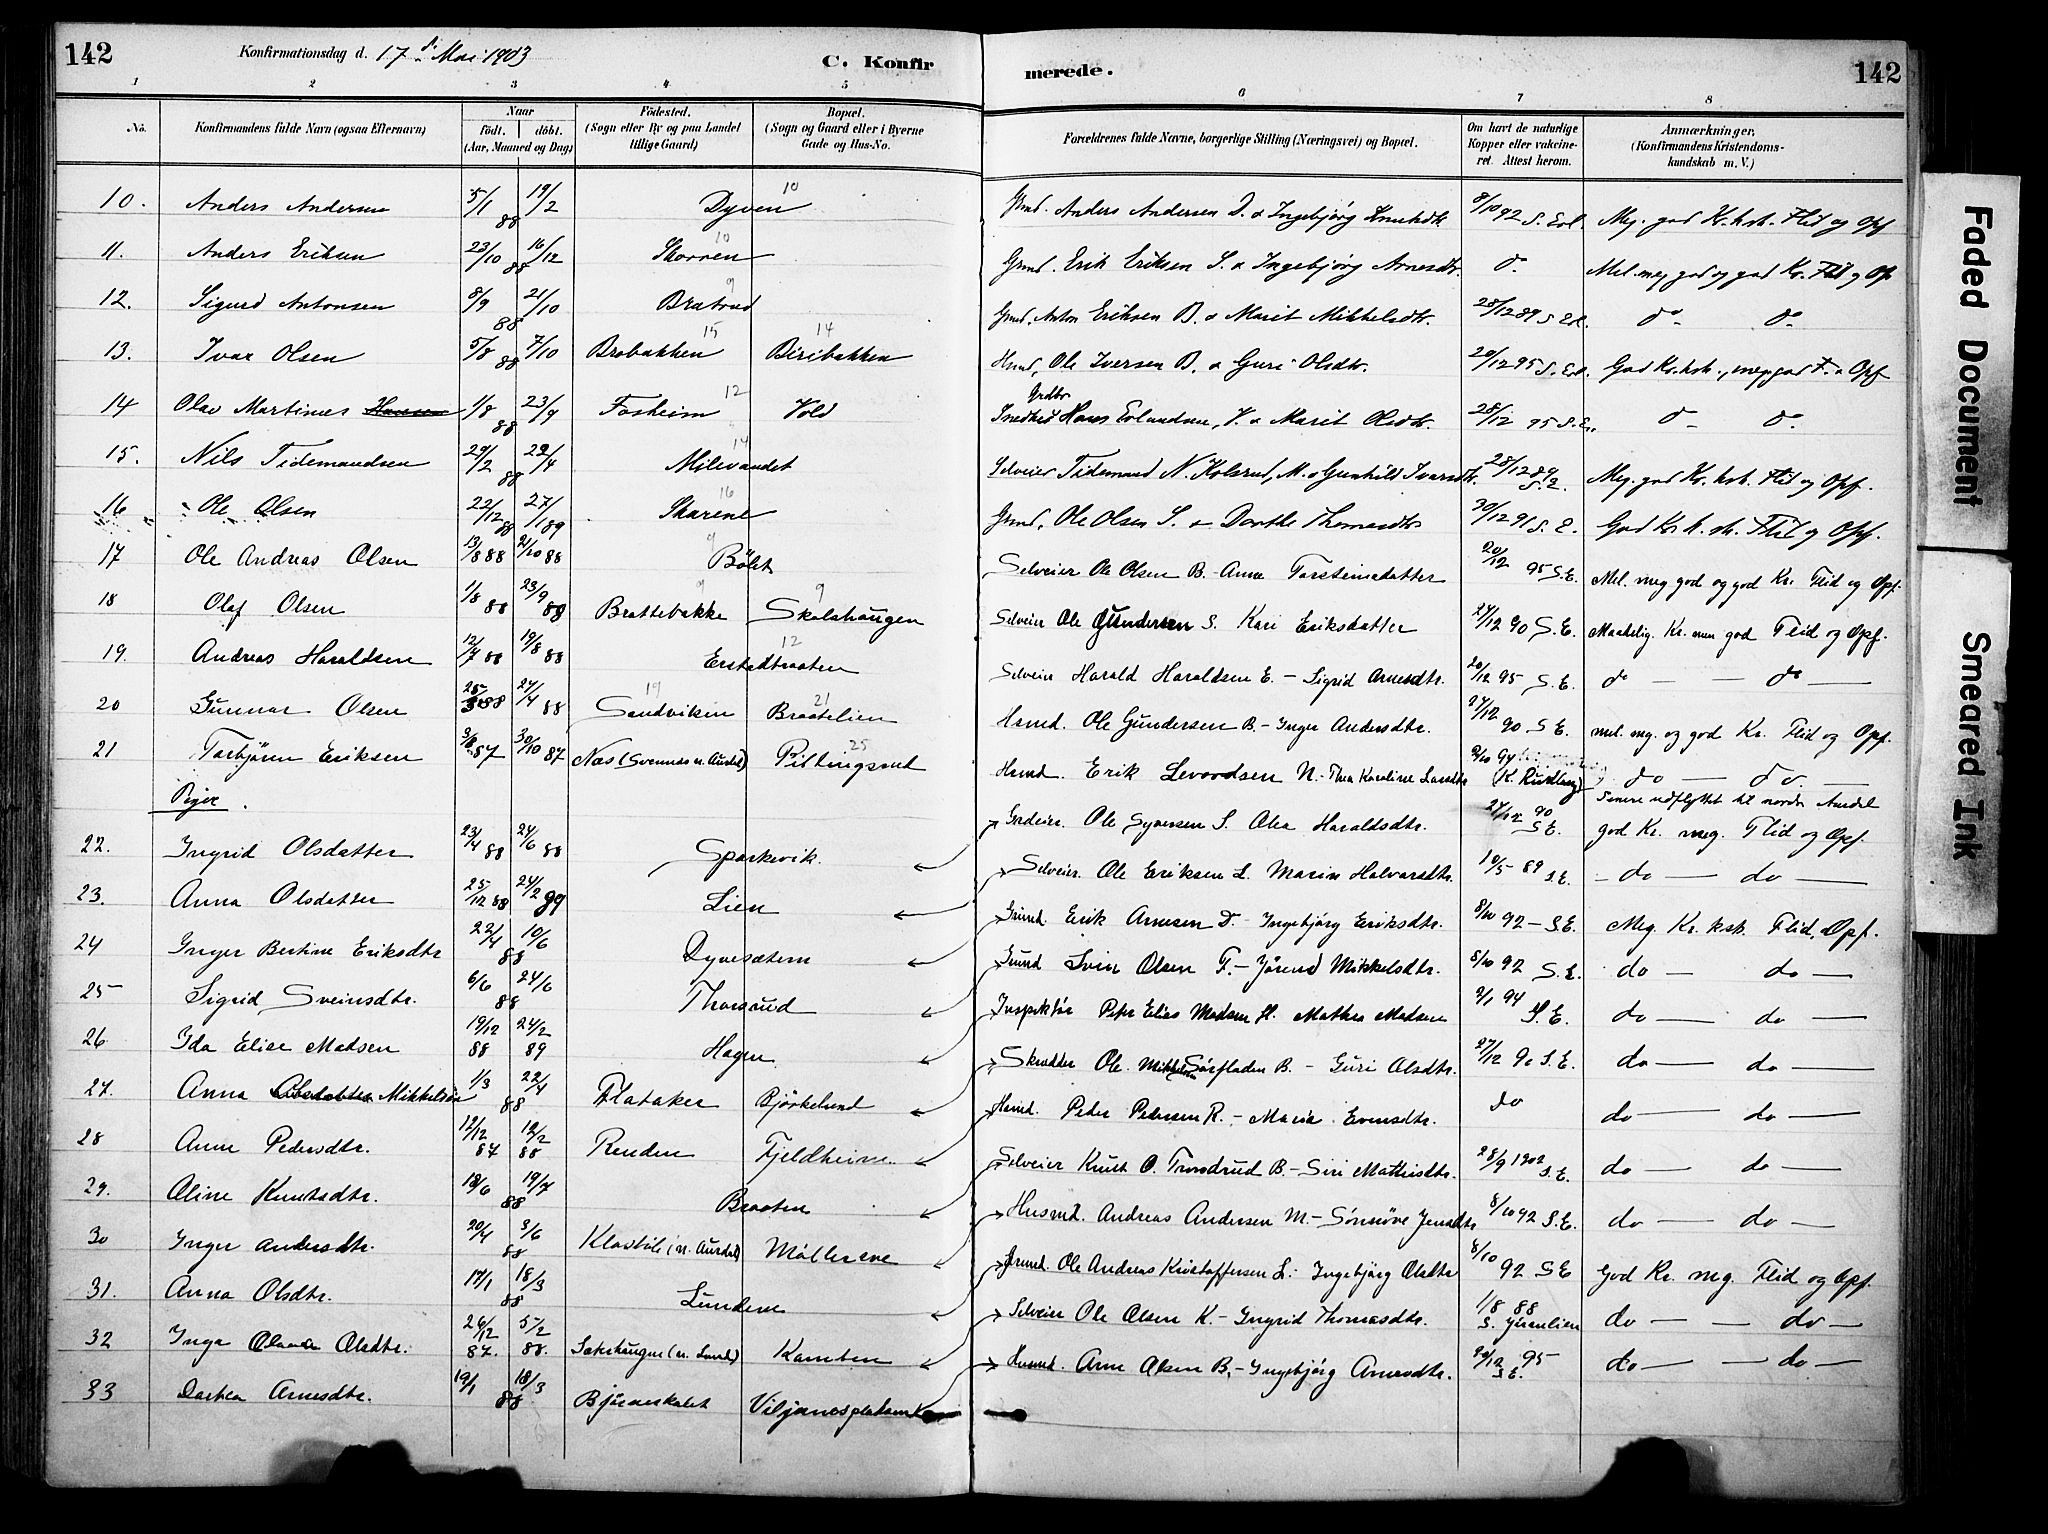 142
Konfirmationsdag d. 17de Mai 1903
C. Konfirmerede.
142
1 2 3 4 5 6 7 8
No. Konfirmandens fulde Navn (ogsaa Efternavn) Naar födt. döbt. (Aar, Maaned og Dag) Födested. (Sogn eller By og paa Landet tillige Gaard) Bopæl. (Sogn og Gaard eller i Byerne Gade og Hus-No.
Forældrenes fulde Navne, borgerlige Stilling (Næringsvei) og Bopæl. Om havt de naturlige Kopper eller vakcineret. Attest herom. Anmærkninger. (Konfirmandens Kristendomskundskab m. V.)
10. Anders Andersen 5/1 88 19/2 Dyven 10 Grmd. Anders Andersen D. & Ingebjörg Knutsdtr. 8/10 92 S. Erl. Meg. god Kr. ksk. Flid og Opf
11. Anders Eriksen 23/10 88 16/12 Skarren 10 Grmd. Erik Eriksen S. & Ingebjörg Arnesdtr. do Mel. meg god og god Kr. Flid og Op
12. Sigurd Antonsen 8/9 88 21/10 Bratrud 9 Grmd. Anton Eriksen B. & Marit Mikkelsdtr. 28/12 89 S. Erl. do - do
13. Ivar Olsen 5/8 88 7/10 Brobakken 15 Biribakken 14 Hsmd, Ole Iversen B. & Guri Olsdtr. 20/12 95 S. Erl. God Kr. ksk., meg god F. & Opf
14 Olav Martinius Hansen 1/8 88 23/9 Fosheim 12 Vold Grdbr Snedker Hans Erlandsen, V. & Marit Olsdtr. 28/12 95 S. E. do - do
15. Nils Tidemandsen 29/2 88 22/4 Milevandet 14 Selveier Tidemand N. Kolsrud, M. & Gunhild Ivarsdtr. 28/12 89 S. E. Meg. god Kr. ksk. Flid og Opf.
16 Ole Olsen 22/12 88 27/1 89 Skarene 16 Grmd, Ole Olsen S. & Dorthe Thomasdtr 30/12 91 S. E. God Kr. k. sk. Flid og Opf.
17 Ole Andreas Olsen 13/8 88 21/10 88 Bölet 9 Selveier Ole Olsen B. - Anne Torsteinsdatter 20/12 95 S.E. Mel. meg god og god Kr. Flid og Opf.
18 Olaf Olsen 1/8 88 23/9 88 Brattebakke 9 Skolshaugen 9 Selveier Ole Gundersen S. Kari Eriksdatter 27/12 90 S.E. Maadelig Kr. men god Flid og Opf.
19. Andreas Haraldsen 12/7 88 19/8 88 Erstadbraaten 12 Selveier Harald Haraldsen E. - Sigrid Arnesdtr. 20/12 95 S.E. do - - do -
20 Gunnar Olsen 25/3 88 27/4 88 Sandviken 19 Braatelien 21 Hsmd. Ole Gundersen B. - Inger Andersdtr. 27/12 90 S E. mel. mg. og god Kr. Flid og Opf.
21 Torbjörn Eriksen 3/8 87 30/10 87 Næs (Svennes n. Aurdal) Piltingsrud 25 Hsmd. Erik Levordsen N. - Thea Karoline Larsdtr 9/10 94 (K. Rustberg) do - do -
Senere udflyttet til nordre Aurdal
Piger.
22. Ingrid Olsdatter 23/4 88 24/6 88 Sparkevik. Grdeier. Ole Syversen S. Olia Haraldsdtr. 27/12 90 S E. god Kr. meg. Flid og Opf.
23. Anna Olsdatter 25/12 88 24/2 89 Lien Selveier. Ole Eriksen L. Marin Halvorsdtr. 10/5 89 S.E. - do - do -
24 Inger Bertine Eriksdtr 22/4 88 10/6 Dyvesætern Grmd. Erik Arnesen D. - Ingebjörg Eriksdtr. 8/10 92 - S.E. Meg. Kr. ksk. Flid, Opf.
25 Sigrid Sveinsdtr. 6/6 88 24/6 Thorsrud Grmd Svein Olsen T. - Jörend Mikkelsdtr. 8/10 92 S. E. do - do -
26 Ida Elise Madsen 19/12 88 24/2 89 Hagen Inspektör Peter Elias Madsen H. Mathea Madsen 9/1 94 S. E. do - do -
27. Anna Olsdatter Mikkelsen 1/3 88 22/4 Flataker Björkelund Skrædder Ole Mikkelsen Sörfladen B. - Guri Olsdtr. 27/12 90 S. E. do - do -
28 Anne Pedersdtr. 12/12 87 12/2 88 Renden Fjeldheim Hsmd. Peder Pedersen R. - Maria Evensdtr. do do - do -
29. Oline Knutsdtr. 18/6 88 19/7 Braaten Selveier Knut O. Trondrud B. - Siri Mathisdtr. 28/9 1902 S.E. do - do -
30 Inger Andersdtr. 20/4 88 3/6 Klastöle (n. Aurdal) Möllereie Husmd. Andreas Andersen M. - Sönnöve Jensdtr 8/10 92 S.E. do - do -
31. Anna Olsdtr. 17/1 88 18/3 Lunden Grmd. Ole Andreas Kristoffersen L. - Ingebjörg Olsdtr 8/10 92 S E God Kr. meg. Flid og Opf.
32 Inga Olava Olsdtr. 26/12 87. 5/2 88. Sæterhaugen (n. Land) Kamben Selveier Ole Olsen K. - Ingrid Thomasdtr. 1/8 88 S. Grønlien do - - do -
33 Dorthea Arnesdtr. 19/1 88 18/3 Björneskalet Viljanespladsen Husmd. Arne Olsen B. - Ingebjörg Arnesdtr. 20/12 95 S.E. do - - do -
Faded Document
Smeared Ink